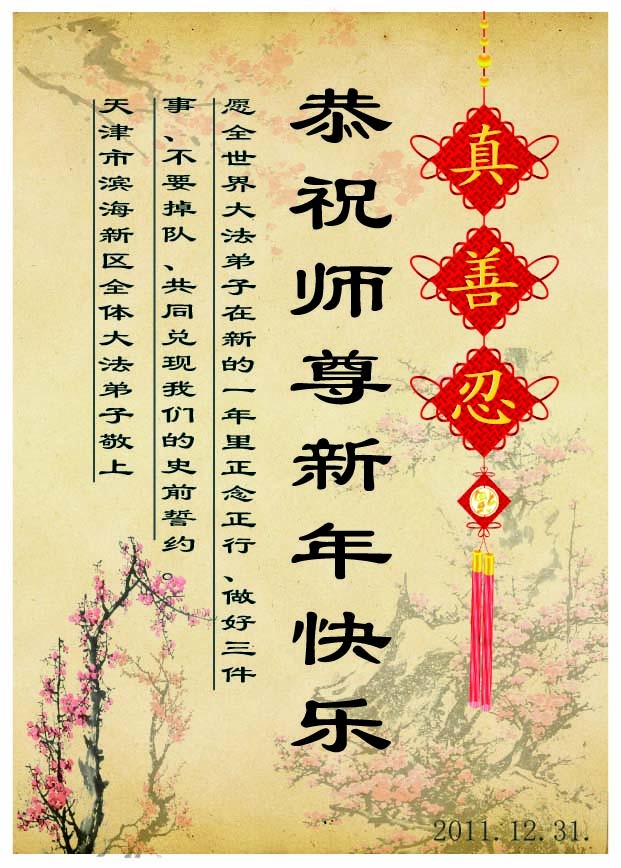 真善忍
恭祝师尊新年快乐
愿全世界大法弟子在新的一年里正念正行、做好三件
事、不要掉队、共同兑现我们的史前誓约。
天津市滨海新区全体大法弟子敬上
2011.12.31.